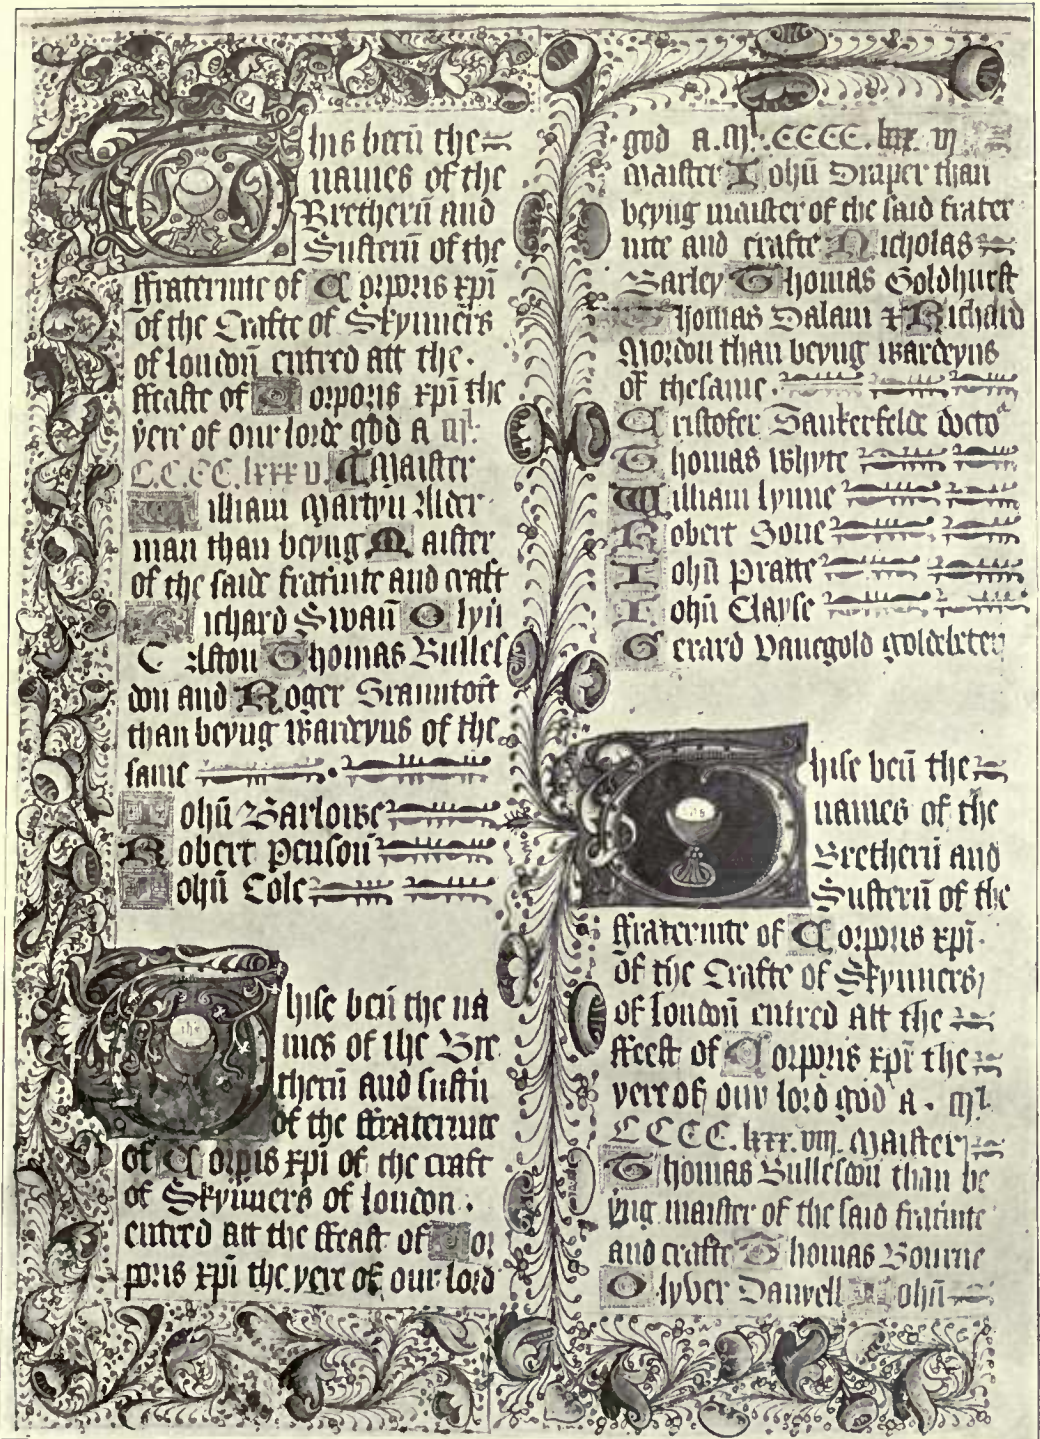 This ben̄ the
names of the
Bretherin̄ and
Sustern̄ of the
ffraternite of Corporis xp̄i
of the Crafte of Skynners
of london̄ entred att the
ffeaste of Corporis xp̄i the
yere of our lorde god a Ml
CCCC lxxxv Maister
William Martyn Alder
man than beyng Maister
of the saide frat̄nite and craft
Richard Swan̄ Olyū
Thomas Bulles
don and Roger
than beyng wardeyns of the
same
John̄ Barlowe
Robert Penson̄
John̄ Cole
Thise ben̄ the na
mes of the Bre
thern̄ and sustn̄
of the ffraternite
of Corpis xp̄i of the craft
of Skynners of london
entred att the ffeast of Cor
poris xp̄i the yere of our lord
god a. Ml. CCCC. lxxx. vj
maister John̄ Draper than
beyng maister of the said frater
nite and crafte Nicholas
Barley Thomas Goldhurst
Thomas Dalam & Richard
Mordon than beyng wardeyns
of thesame
Cristofer docto
Thomas Whyte
William lynne
Robert Bone
John̄ Pratte
John̄ Clayse
Gerard Vanegold goldebeter
Thise ben̄ the
names of the
Bretheren̄ and
Sustern̄ of the
ffraternite of Corporis xp̄i
of the Crafte of Skynners
of london̄ entred att the
ffeest of Corporis xp̄i the
yere of our lord god a. Ml
CCCC. lxxx. viij. Maister
Thomas Bullesdon than be
yng maister of the said frat̄nite
and crafte Thomas Bourne
Olyver Danyell John̄